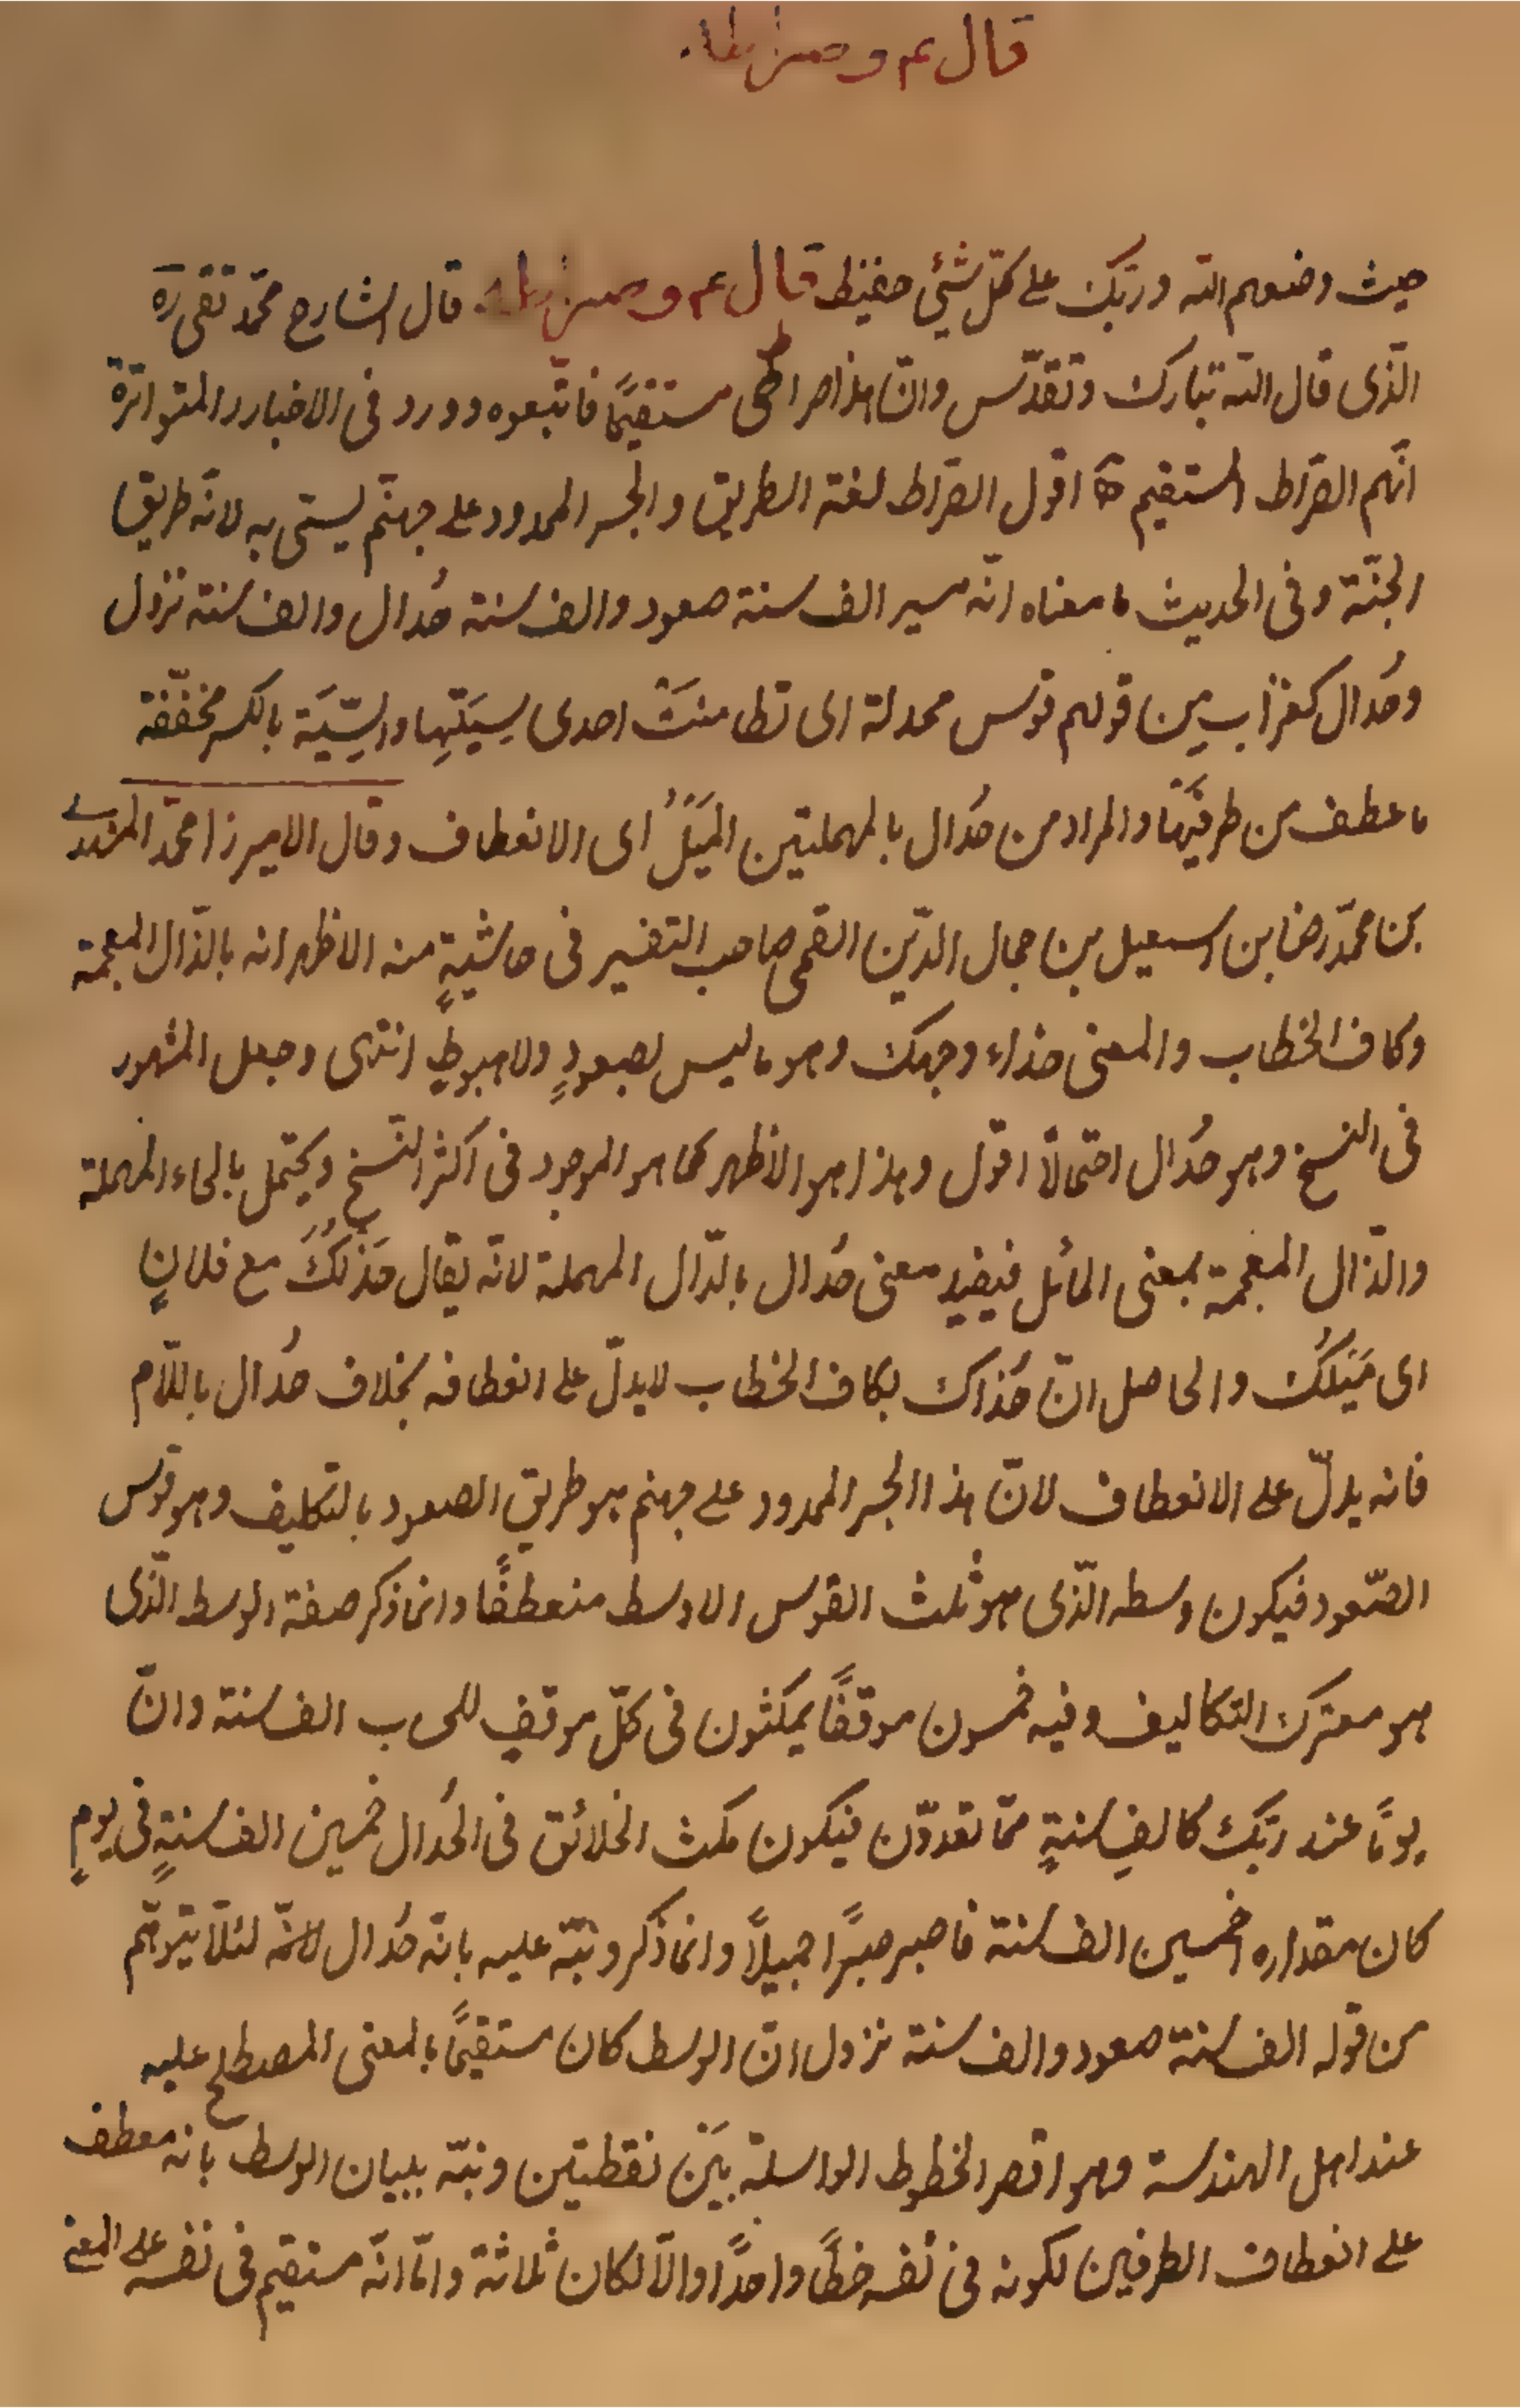 قال ع و صراطه
حيث وضعهم الله و ربّك على كلّ شئ حفيظ قال ع و صراطه قال الشارح محمّد تقى ره
الّذى قال الله تبارك و تقدّس وانّ هذا صراطى مستقيمًا فاتّبعوه و ورد فى الاخبار المتواترة
انّهم الصّراط المستقيم اقول الصّراط لغة الطريق و الجسر الممدود على جهنّم يسمّى به لانّه طريق
الجنّة و فى الحديث ما معناه انّه مسير الف سنة صعود والف سنة حُدال والف سنة نزول
و حُدال كغراب من قولهم قوس محدلة اى تطامنَتْ احدى سِيَتَيها والسِّيَة بالكسر مخفّفة
ما عطف من طرفَيْها والمراد من حُدال بالمهملتين المَيَلُ اى الانعطاف و قال الاميرزا محمّد المشهدى
بن محمّد رضا بن اسمعيل بن جمال الدّين القمى صاحب التفسير فى حاشيةٍ منه الاظهر انه بالذّال المعجمة
و كاف الخطاب والمعنى حذاء وجهك وهو ما ليس بصعودٍ ولا هبوطٍ انتهى وجعل المشهور
فى النسخ وهو حُدال احتمالًا اقول وهذا هو الأظهر كما هو الموجود فى اكثر النّسخ و يحتمل بالحاء المهملة
والذّال المعجمة بمعنى المائل فيفيد معنى حُدال بالدّال المهملة لانّه يقال حَذْلُكَ مع فلانٍ
اى مَيَلُكَ والحاصل انّ حُذاك بكاف الخطاب لا يدلّ على انعطافه بخلاف حُدال باللّام
فانه يدلّ على الانعطاف لانّ هذا الجسر الممدود على جهنم هو طريق الصعود بالتكليف وهو قوس
الصّعود فيكون وسطه الّذى هو ثلث القوس الاوسط منعطفًا وانما ذكر صفة الوسط الّذى
هو معترك التكاليف وفيه خمسون موقفًا يمكثون فى كلّ موقفٍ للحساب الف سنة وانّ
يومًا عند ربّك كالفِ سنةٍ ممّا تعدّون فيكون مكث الخلائق فى الحُدال خمسين الف سنةٍ فى يومٍ
كان مقداره خمسين الف سنة فاصبر صبرًا جميلًا وانما ذكر ونبّه عليه بانّه حُدال لانّه لئلّا يتوهّم
من قوله الف سنة صعود والف سنة نزول انّ الوسط كان مستقيمًا بالمعنى المصطلح عليه
عند اهل الهندسة وهو اقصر الخطوط الواسلة بَيْن نقطتين ونبّه ببيان الوسط بانه معطف
على انعطاف الطرفين لكونه فى نفسه خطًّا واحدًا والّا لكان ثلاثة وامّا انّه مستقيم فى نفسه على المعنى